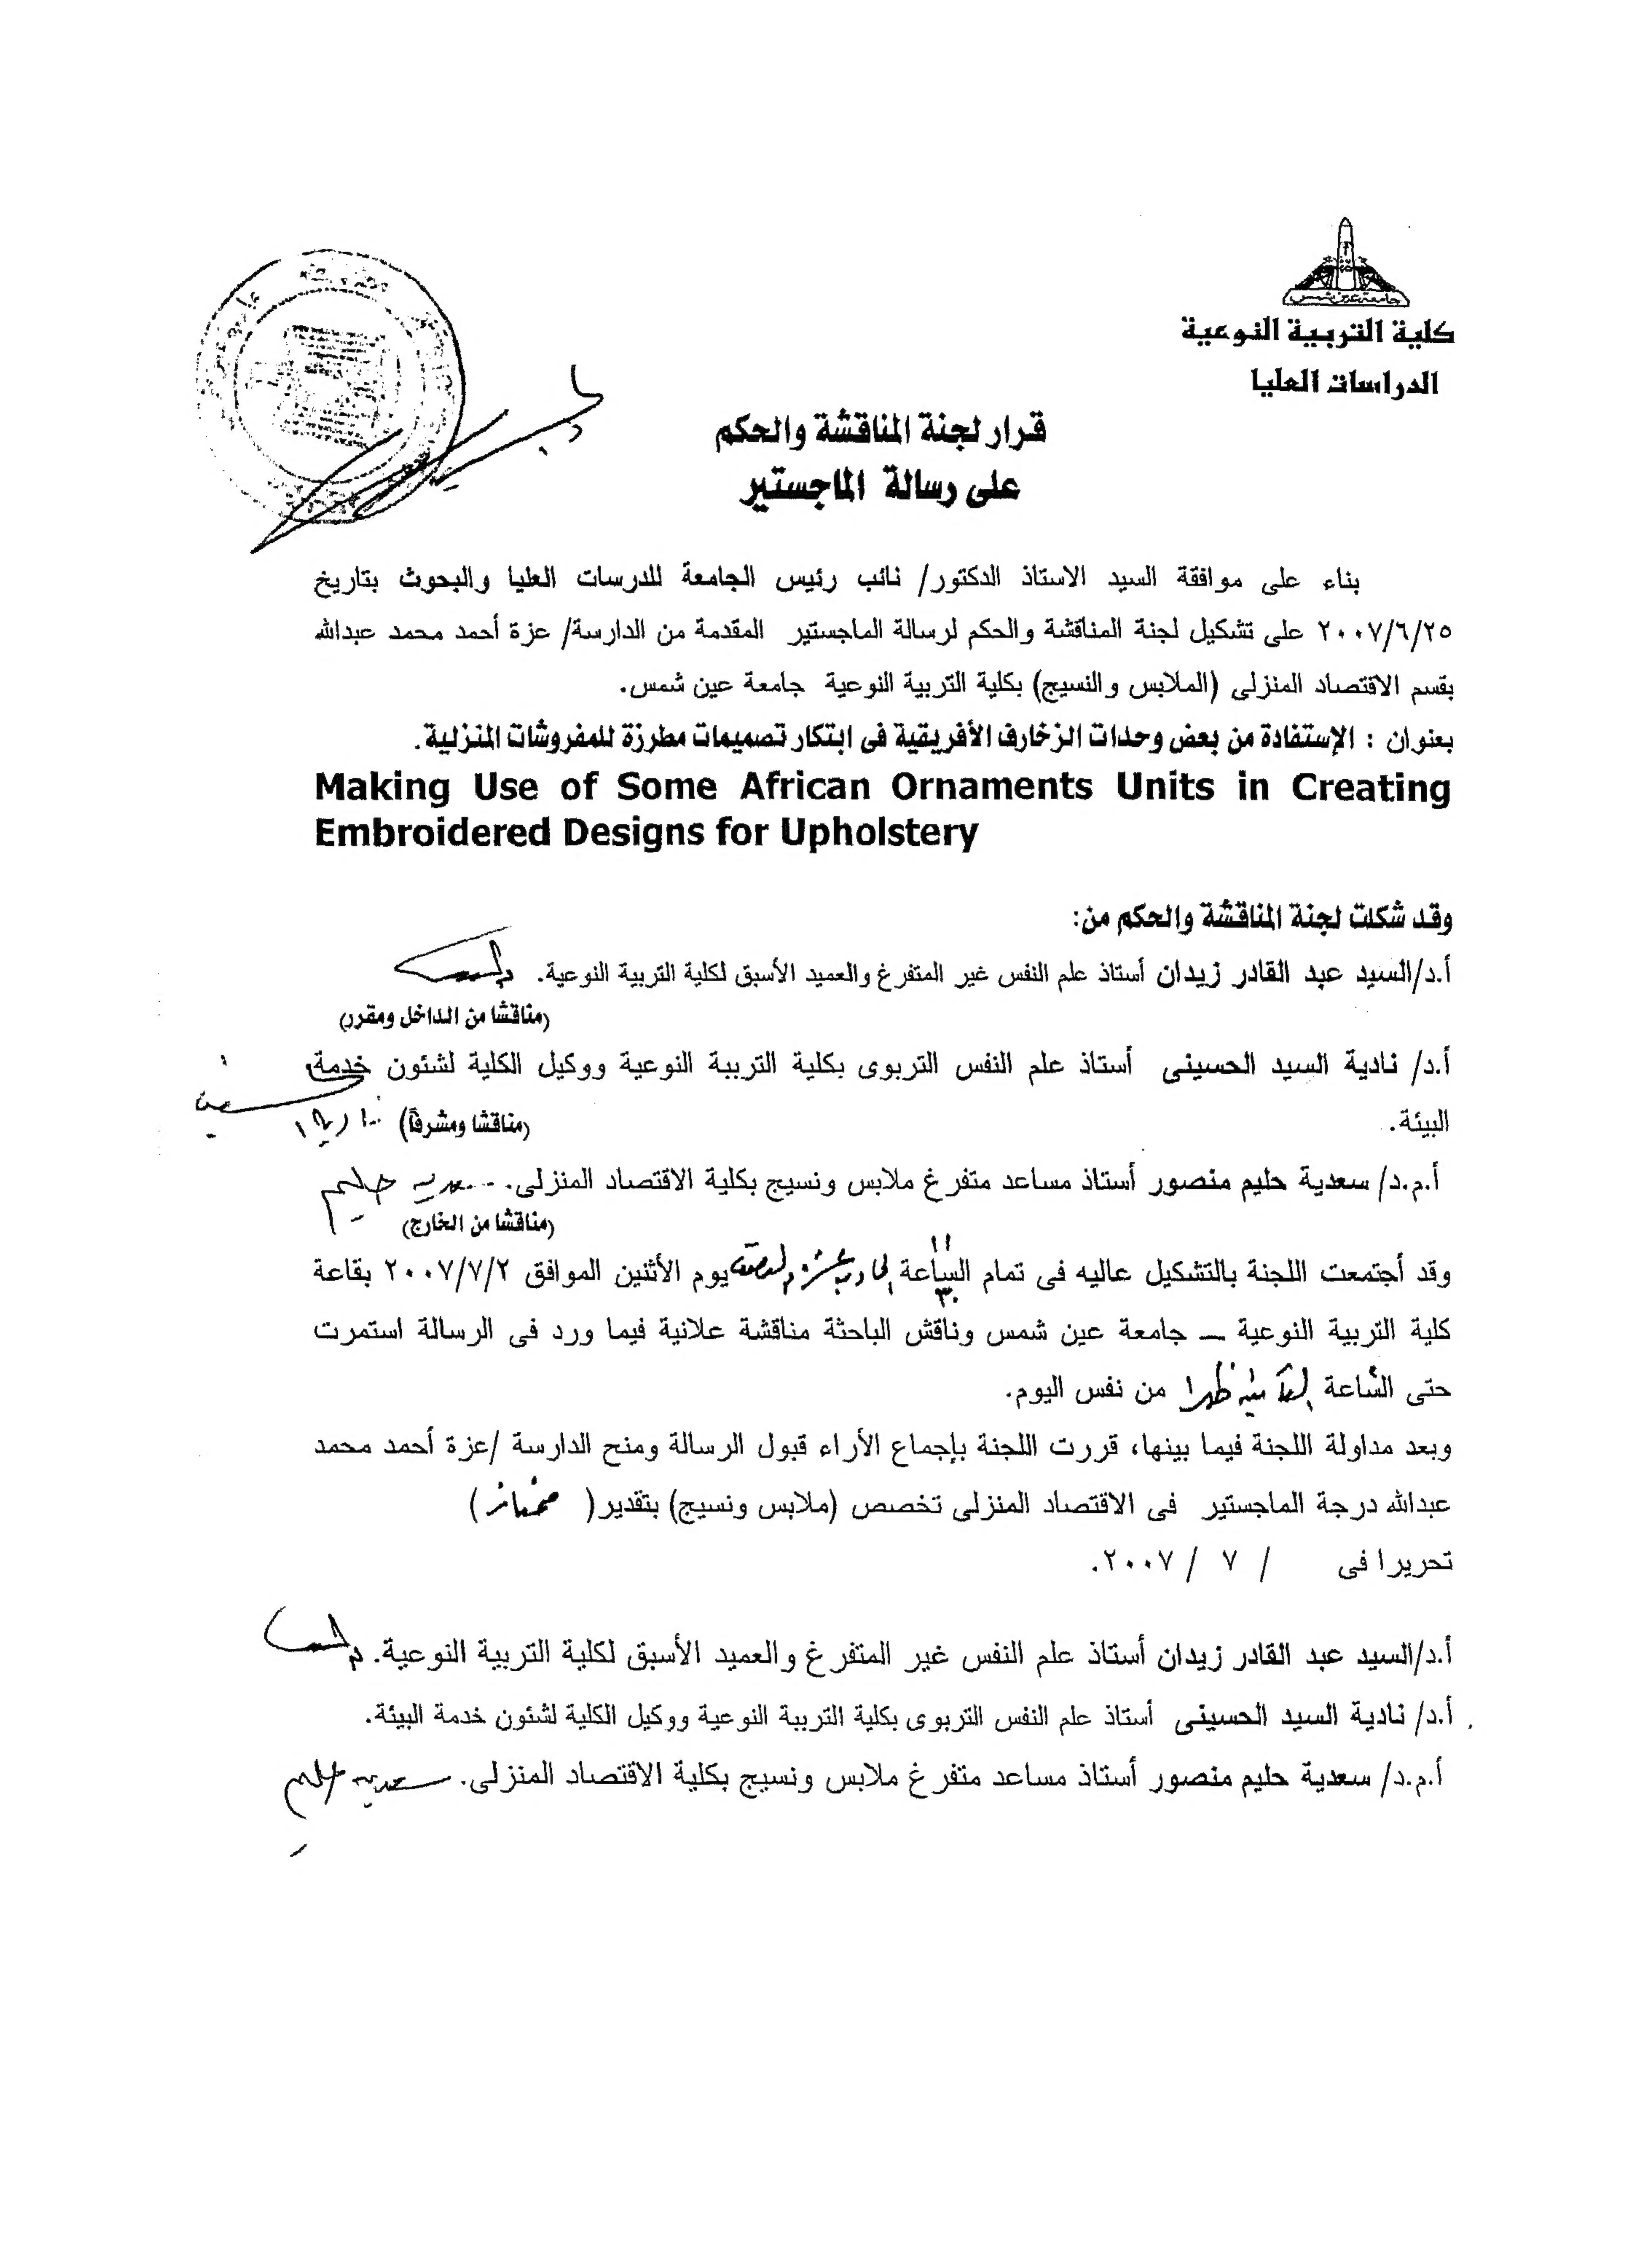 جامعة عين شمس
كلية التربية النوعية
الدراسات العليا
قرار لجنة المناقشة والحكم
على رسالة الماجستير
بناء على موافقة السيد الاستاذ الدكتور/ نائب رئيس الجامعة للدرسات العليا والبحوث بتاريخ
٢٠٠٧/٦/٢٥ على تشكيل لجنة المناقشة والحكم لرسالة الماجستير المقدمة من الدارسة/ عزة أحمد محمد عبدالله
بقسم الاقتصاد المنزلى (الملابس والنسيج) بكلية التربية النوعية جامعة عين شمس.
بعنوان : الإستفادة من بعض وحدات الزخارف الأفريقية فى ابتكار تصميمات مطرزة للمفروشات المنزلية.
Making Use of Some African Ornaments Units in Creating
Embroidered Designs for Upholstery
وقد شكلت لجنة المناقشة والحكم من:
أ.د/السيد عبد القادر زيدان أستاذ علم النفس غير المتفرغ والعميد الأسبق لكلية التربية النوعية.
(مناقشا من الداخل ومقرر)
أ.د/ نادية السيد الحسينى أستاذ علم النفس التربوى بكلية التربية النوعية ووكيل الكلية لشئون خدمة
البيئة.
(مناقشا ومشرفاً)
أ.م.د/ سعدية حليم منصور أستاذ مساعد متفرغ ملابس ونسيج بكلية الاقتصاد المنزلى. سعدية حليم
(مناقشا من الخارج)
وقد أجتمعت اللجنة بالتشكيل عاليه فى تمام الساعة الحادية عشرة والنصف يوم الأثنين الموافق ٢٠٠٧/٧/٢ بقاعة
كلية التربية النوعية – جامعة عين شمس وناقش الباحثة مناقشة علانية فيما ورد فى الرسالة استمرت
حتى الساعة الثانية ظهرا من نفس اليوم.
وبعد مداولة اللجنة فيما بينها، قررت اللجنة بإجماع الأراء قبول الرسالة ومنح الدارسة /عزة أحمد محمد
عبدالله درجة الماجستير فى الاقتصاد المنزلى تخصص (ملابس ونسيج) بتقدير( ممتاز )
تحريرا فى / ٧ / ٢٠٠٧.
أ.د/السيد عبد القادر زيدان أستاذ علم النفس غير المتفرغ والعميد الأسبق لكلية التربية النوعية.
أ.د/ نادية السيد الحسينى أستاذ علم النفس التربوى بكلية التربية النوعية ووكيل الكلية لشئون خدمة البيئة.
أ.م.د/ سعدية حليم منصور أستاذ مساعد متفرغ ملابس ونسيج بكلية الاقتصاد المنزلى. سعدية حليم